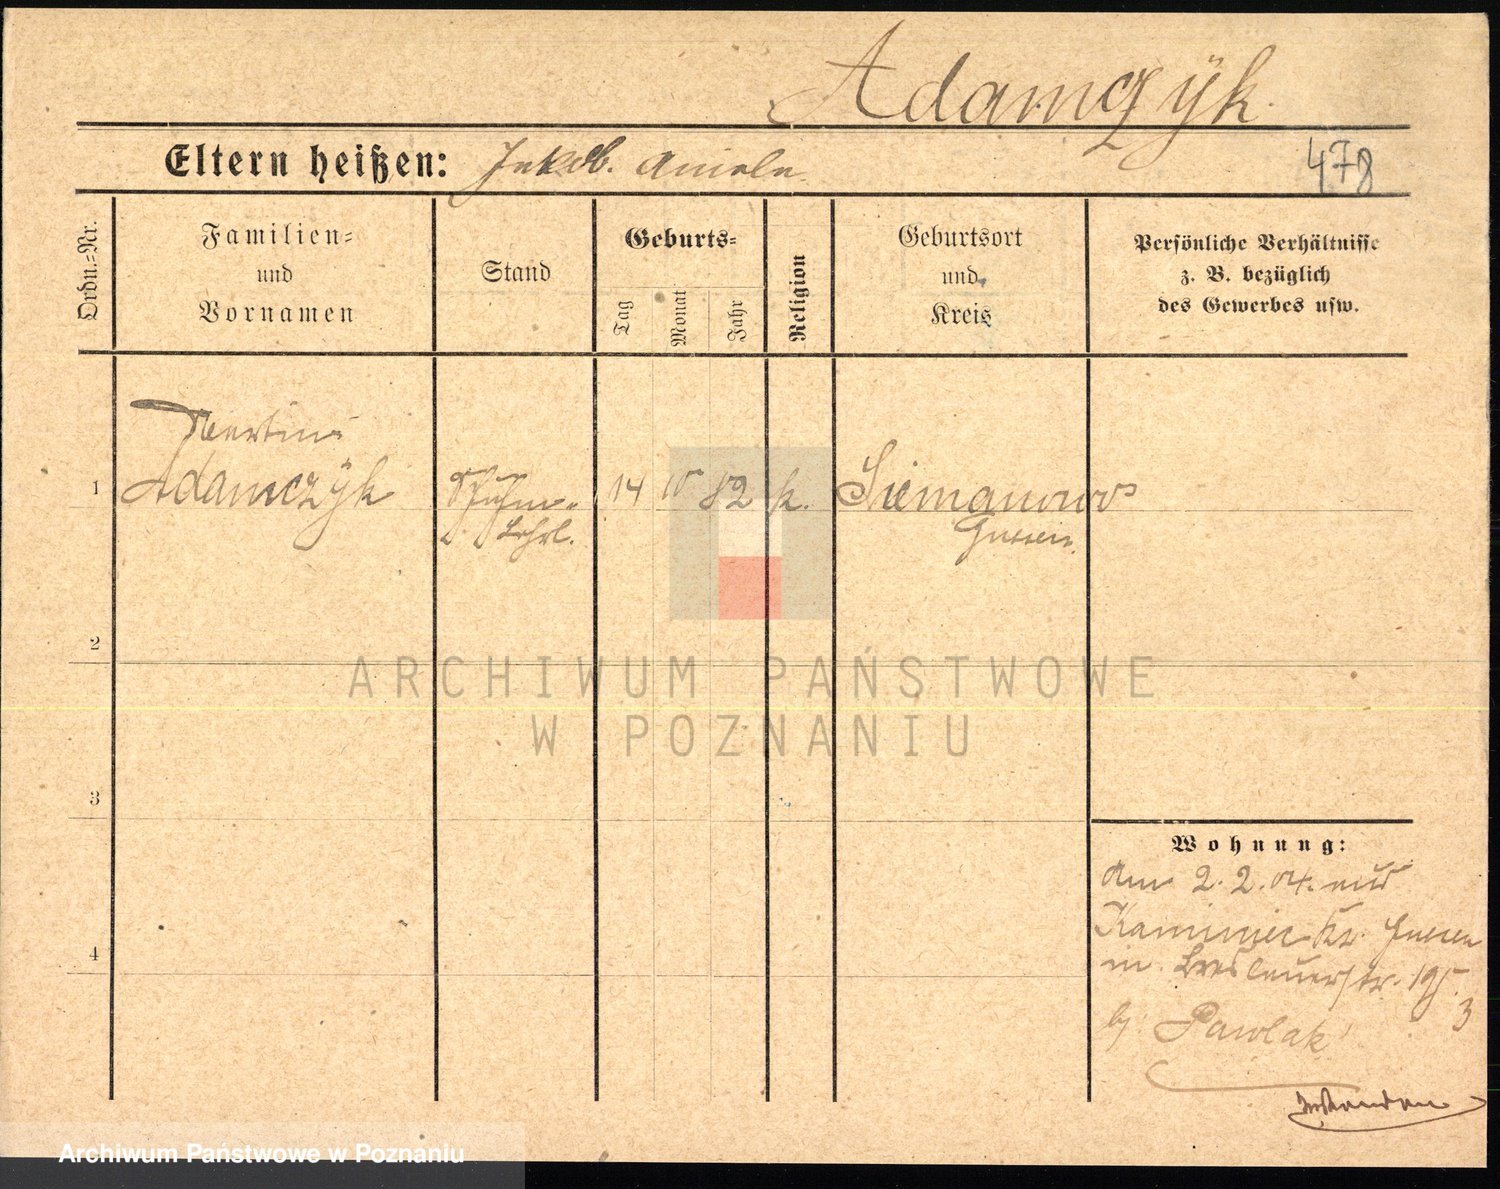 Adamczÿk.
Eltern heißen: Jakob. Aniela.
478
Ordn.-Nr.
Familien- und Vornamen
Stand
Geburts-
Tag
Monat
Jahr
Religion
Geburtsort und Kreis
Persönliche Verhältnisse
z. B. bezüglich
des Gewerbes usw.
Martin
1 Adamczÿk 14 10 82 k. Siemanowo
Lehrl. Gnesen.
2
ARCHIWUM PAŃSTWOWE
W POZNANIU
3
4
Wohnung:
Am 2.2.04. aus
Kaminiec Kr. Gnesen
in Breslauerstr. 195
3
b/ Pawlak
Archiwum Państwowe w Poznaniu